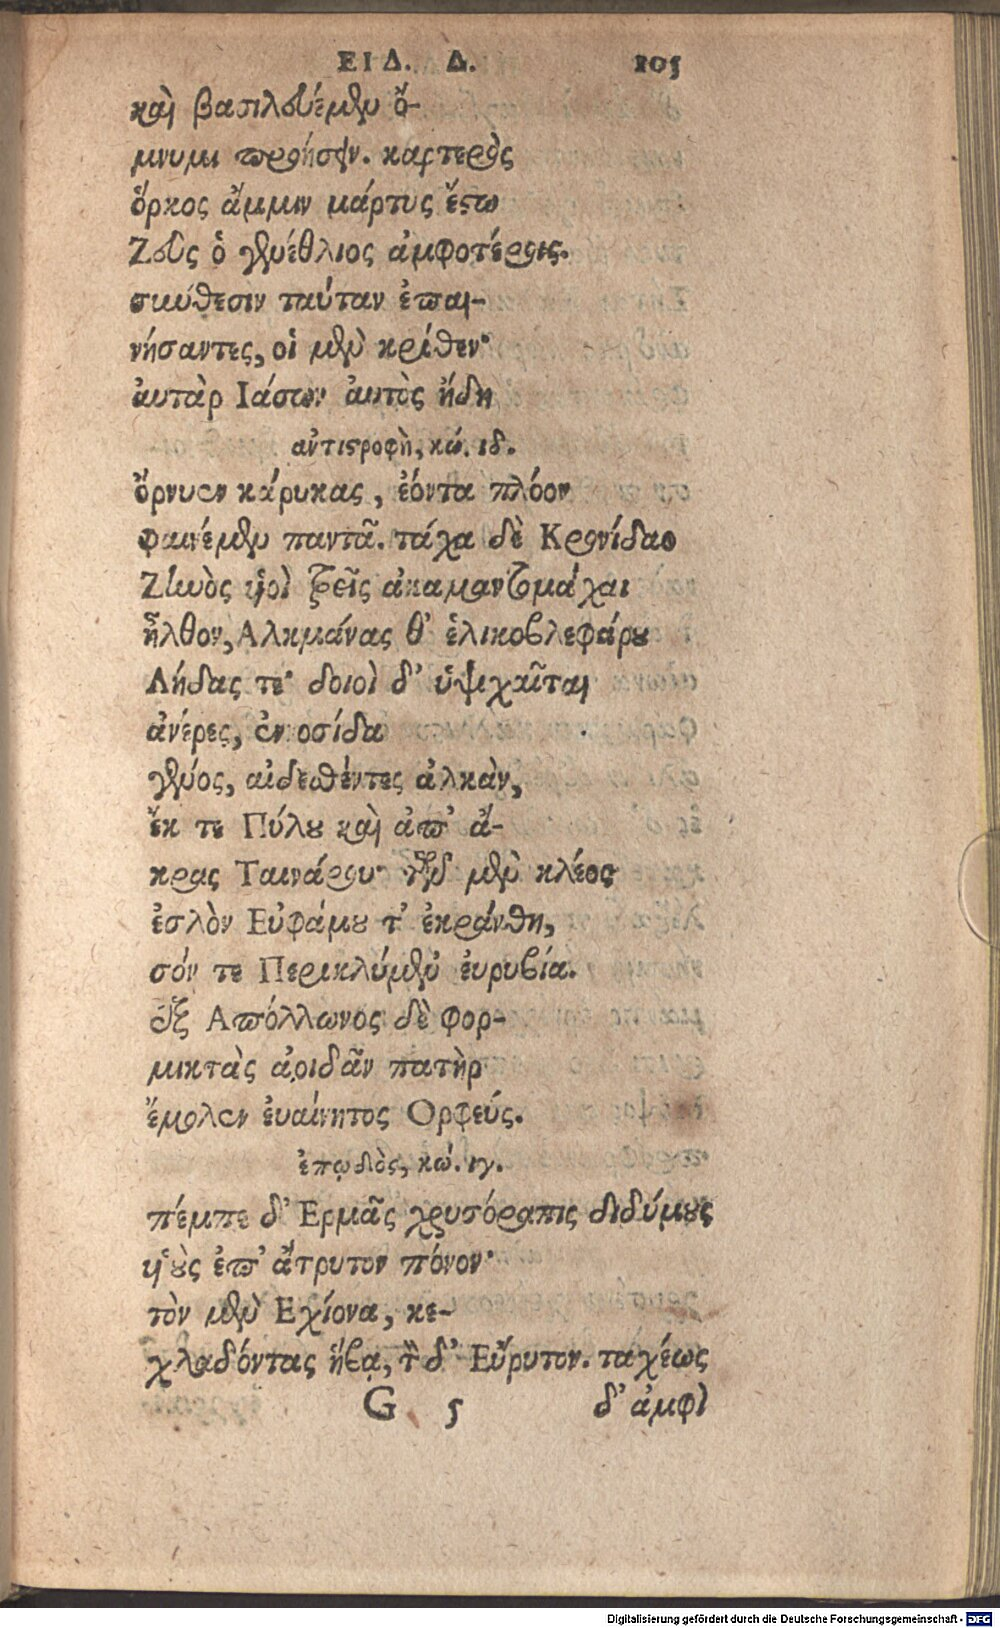 ΕΙΔ. Δ. 105
καὶ βασιλευέμεν ὄ-
μνυμι προήσειν. καρτερὸς
ὅρκος ἄμμιν μάρτυς ἔστω
Ζεὺς ὁ γενέθλιος ἀμφοτέροις.
σιωύθεσιν ταύταν ἐπαι-
νήσαντες, οἱ μὲν κρίθεν·
ἀυτὰρ Ιάσων ἀυτὸς ἤδη
αντιστροφὴ, κώ. ιδ.
ὄρνυεν κάρυκας, ἐόντα πλόον
φαινέμεν παντᾶ. τάχα δὲ Κρονίδαο
Ζίωὸς ὑιοὶ τρεῖς ἀκαμαντομάχαι
ἦλθον, Αλκμάνας θ' ἑλικοβλεφάρου
Λήδας τε· δοιοὶ δ' ὑψιχαῖται
ἀνέρες, ἐνοσίδα
γένος, αἰδεσθέντες ἀλκὰν,
ἔκ τε Πύλου καὶ ἀπ' ἄ-
κρας Ταινάρου· τῶν μὲν κλέος
ἐσλὸν Εὐφάμου τ' ἐκράνθη,
σόν τε Περικλύμεν' ἐυρυβία.
ἐξ Απόλλωνος δὲ φορ-
μικτὰς ἀοιδᾶν πατὴρ
ἔμολεν ἐυαίνητος Ορφεύς.
ἐπῳδὸς, κώ. ιγ.
πέμπε δ' Ερμᾶς χρυσόραπις διδύμους
ὑιοὺς ἐπ' ἄτρυτον πόνον·
τὸν μὲν Εχίονα, κε-
χλαδόντας ἥβᾳ, τὸν δ' Εὔρυτον. ταχέως
G 5 δ' ἀμφὶ
Digitalisierung gefördert durch die Deutsche Forschungsgemeinschaft - DFG